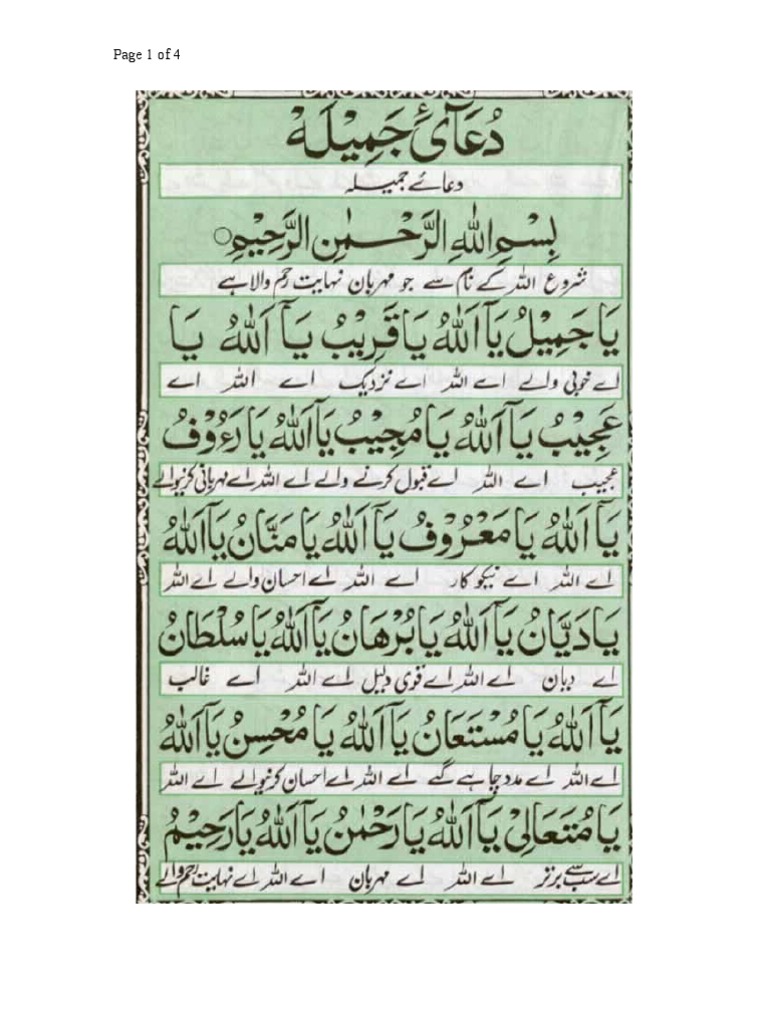 Page 1 of 4
دُعَآئِ جَمِيْلَهْ
دعائے جمیلہ
بِسْمِ اللّٰهِ الرَّحْمٰنِ الرَّحِيْمِ○
شروع اللہ کے نام سے جو مہربان نہایت رحم والا ہے
يَا جَمِيْلُ يَآ اَللّٰهُ يَا قَرِيْبُ يَآ اَللّٰهُ يَا
اے خوبی والے اے اللہ اے نزدیک اے اللہ اے
عَجِيْبُ يَآ اَللّٰهُ يَا مُجِيْبُ يَآ اَللّٰهُ يَا رَءُوْفُ
عجیب اے اللہ اے قبول کرنے والے اے اللہ اے مہربانی کرنیوالے
يَآ اَللّٰهُ يَا مَعْرُوْفُ يَآ اَللّٰهُ يَا مَنَّانُ يَآ اَللّٰهُ
اے اللہ اے نیکو کار اے اللہ اے احسان والے اے اللہ
يَا دَيَّانُ يَآ اَللّٰهُ يَا بُرْهَانُ يَآ اَللّٰهُ يَا سُلْطَانُ
اے دیان اے اللہ اے قوی دلیل اے اللہ اے غالب
يَآ اَللّٰهُ يَا مُسْتَعَانُ يَآ اَللّٰهُ يَا مُحْسِنُ يَآ اَللّٰهُ
اے اللہ اے مدد چاہے گئے اے اللہ اے احسان کرنیوالے اے اللہ
يَا مُتَعَالِيْ يَآ اَللّٰهُ يَا رَحْمٰنُ يَآ اَللّٰهُ يَا رَحِيْمُ
اے سب سے برتر اے اللہ اے مہربان اے اللہ اے نہایت رحم والے